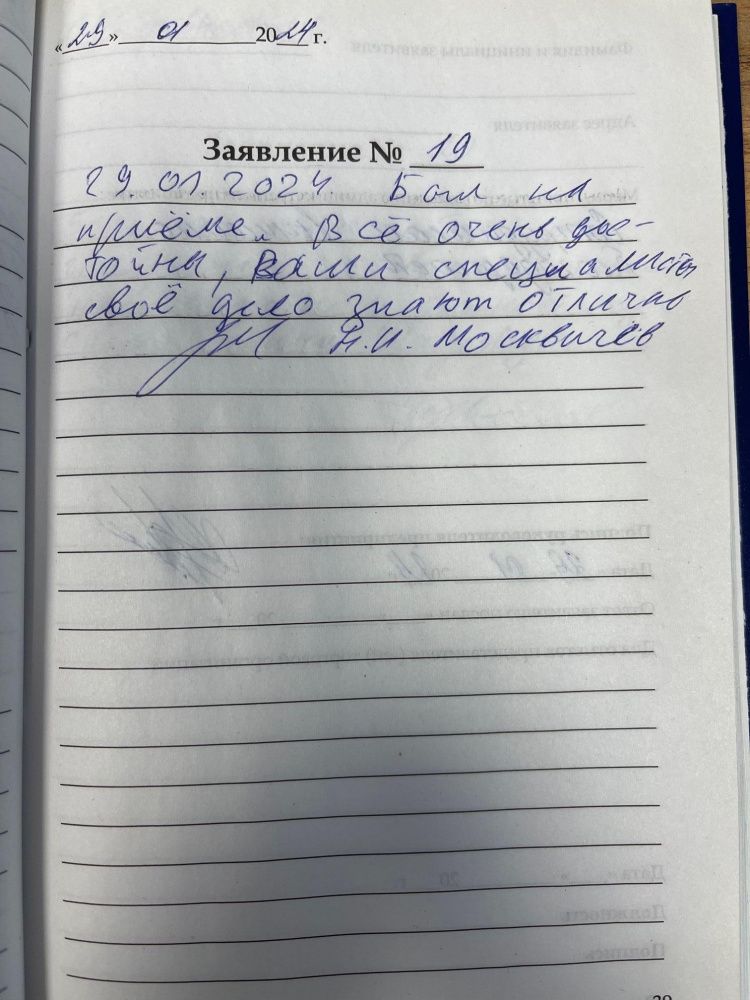 «29» 01 2024 г.
Заявление № 19
29.01.2024 Был на
приёме. Всё очень дос-
тойны, Ваши специалисты
своё дело знают отлично
Н.И. Москвичёв